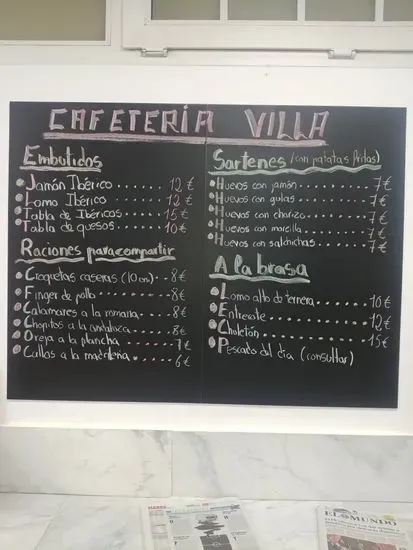 CAFETERÍA VILLA
Embutidos
Jamón Ibérico ...... 12 €
Lomo Ibérico ...... 12 €
Tabla de Ibéricos .... 15 €
Tabla de quesos .... 10 €
Raciones para compartir
Croquetas caseras (10 un) .. 8 €
Finger de pollo ........ 8 €
Calamares a la romana .... 8 €
Chopitos a la andaluza .... 8 €
Oreja a la plancha ...... 7 €
Callos a la madrileña ..... 6 €
Sartenes (con patatas fritas)
Huevos con jamón ........ 7 €
Huevos con gulas ........ 7 €
Huevos con chorizo ....... 7 €
Huevos con morcilla ...... 7 €
Huevos con salchichas ..... 7 €
A la brasa
Lomo alto de ternera ....... 16 €
Entrecote ............ 12 €
Chuletón ............ 15 €
Pescado del día (consultar)
MARCA
EL MUNDO